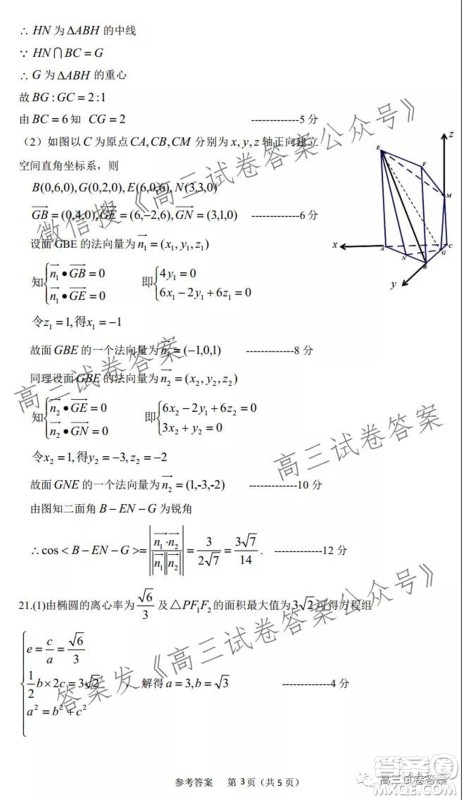 ∴ HN 为△ABH 的中线
∵ HN∩BC = G
∴ G 为△ABH 的重心
故 BG : GC = 2 : 1
由 BC = 6 知 CG = 2 -------------5 分
（2）如图以 C 为原点 CA, CB, CM 分别为 x, y, z 轴正向建立
空间直角坐标系，则
B(0,6,0), G(0,2,0), E(6,0,6), N(3,3,0)
GB = (0,4,0), GE = (6,-2,6), GN = (3,1,0) -------------6 分
设面 GBE 的法向量为 n₁ = (x₁, y₁, z₁)
知{n₁•GB = 0 即{4y₁ = 0
n₁•GE = 0 6x₁ - 2y₁ + 6z₁ = 0
令 z₁ = 1, 得 x₁ = -1
故面 GBE 的一个法向量为 n₁ = (-1,0,1) -------------8 分
同理设面 GBE 的法向量为 n₂ = (x₂, y₂, z₂)
知{n₂•GE = 0 即{6x₂ - 2y₂ + 6z₂ = 0
n₂•GN = 0 3x₂ + y₂ = 0
令 x₂ = 1, 得 y₂ = -3, z₂ = -2
故面 GNE 的一个法向量为 n₂ = (1,-3,-2) -------------10 分
由图知二面角 B - EN - G 为锐角
∴ cos < B - EN - G >= |n₁·n₂ / |n₁||n₂|| = 3/(2√7) = 3√7/14 . -------------12 分
21.(1)由椭圆的离心率为 √6/3 及△PF₁F₂ 的面积最大值为 3√2 可得方程组
{e = c/a = √6/3
1/2 b × 2c = 3√2 ，解得 a = 3, b = √3 -------------4 分
a² = b² + c²
参考答案 第 3 页（共 5 页）
z
E
F
M
x
A
C
N
G
B
y
微信搜《高三试卷答案公众号》
高三试卷答案
高三试卷答案
答案发《高三试卷答案公众号》
高三试卷答案
答案圈
MXQE.COM